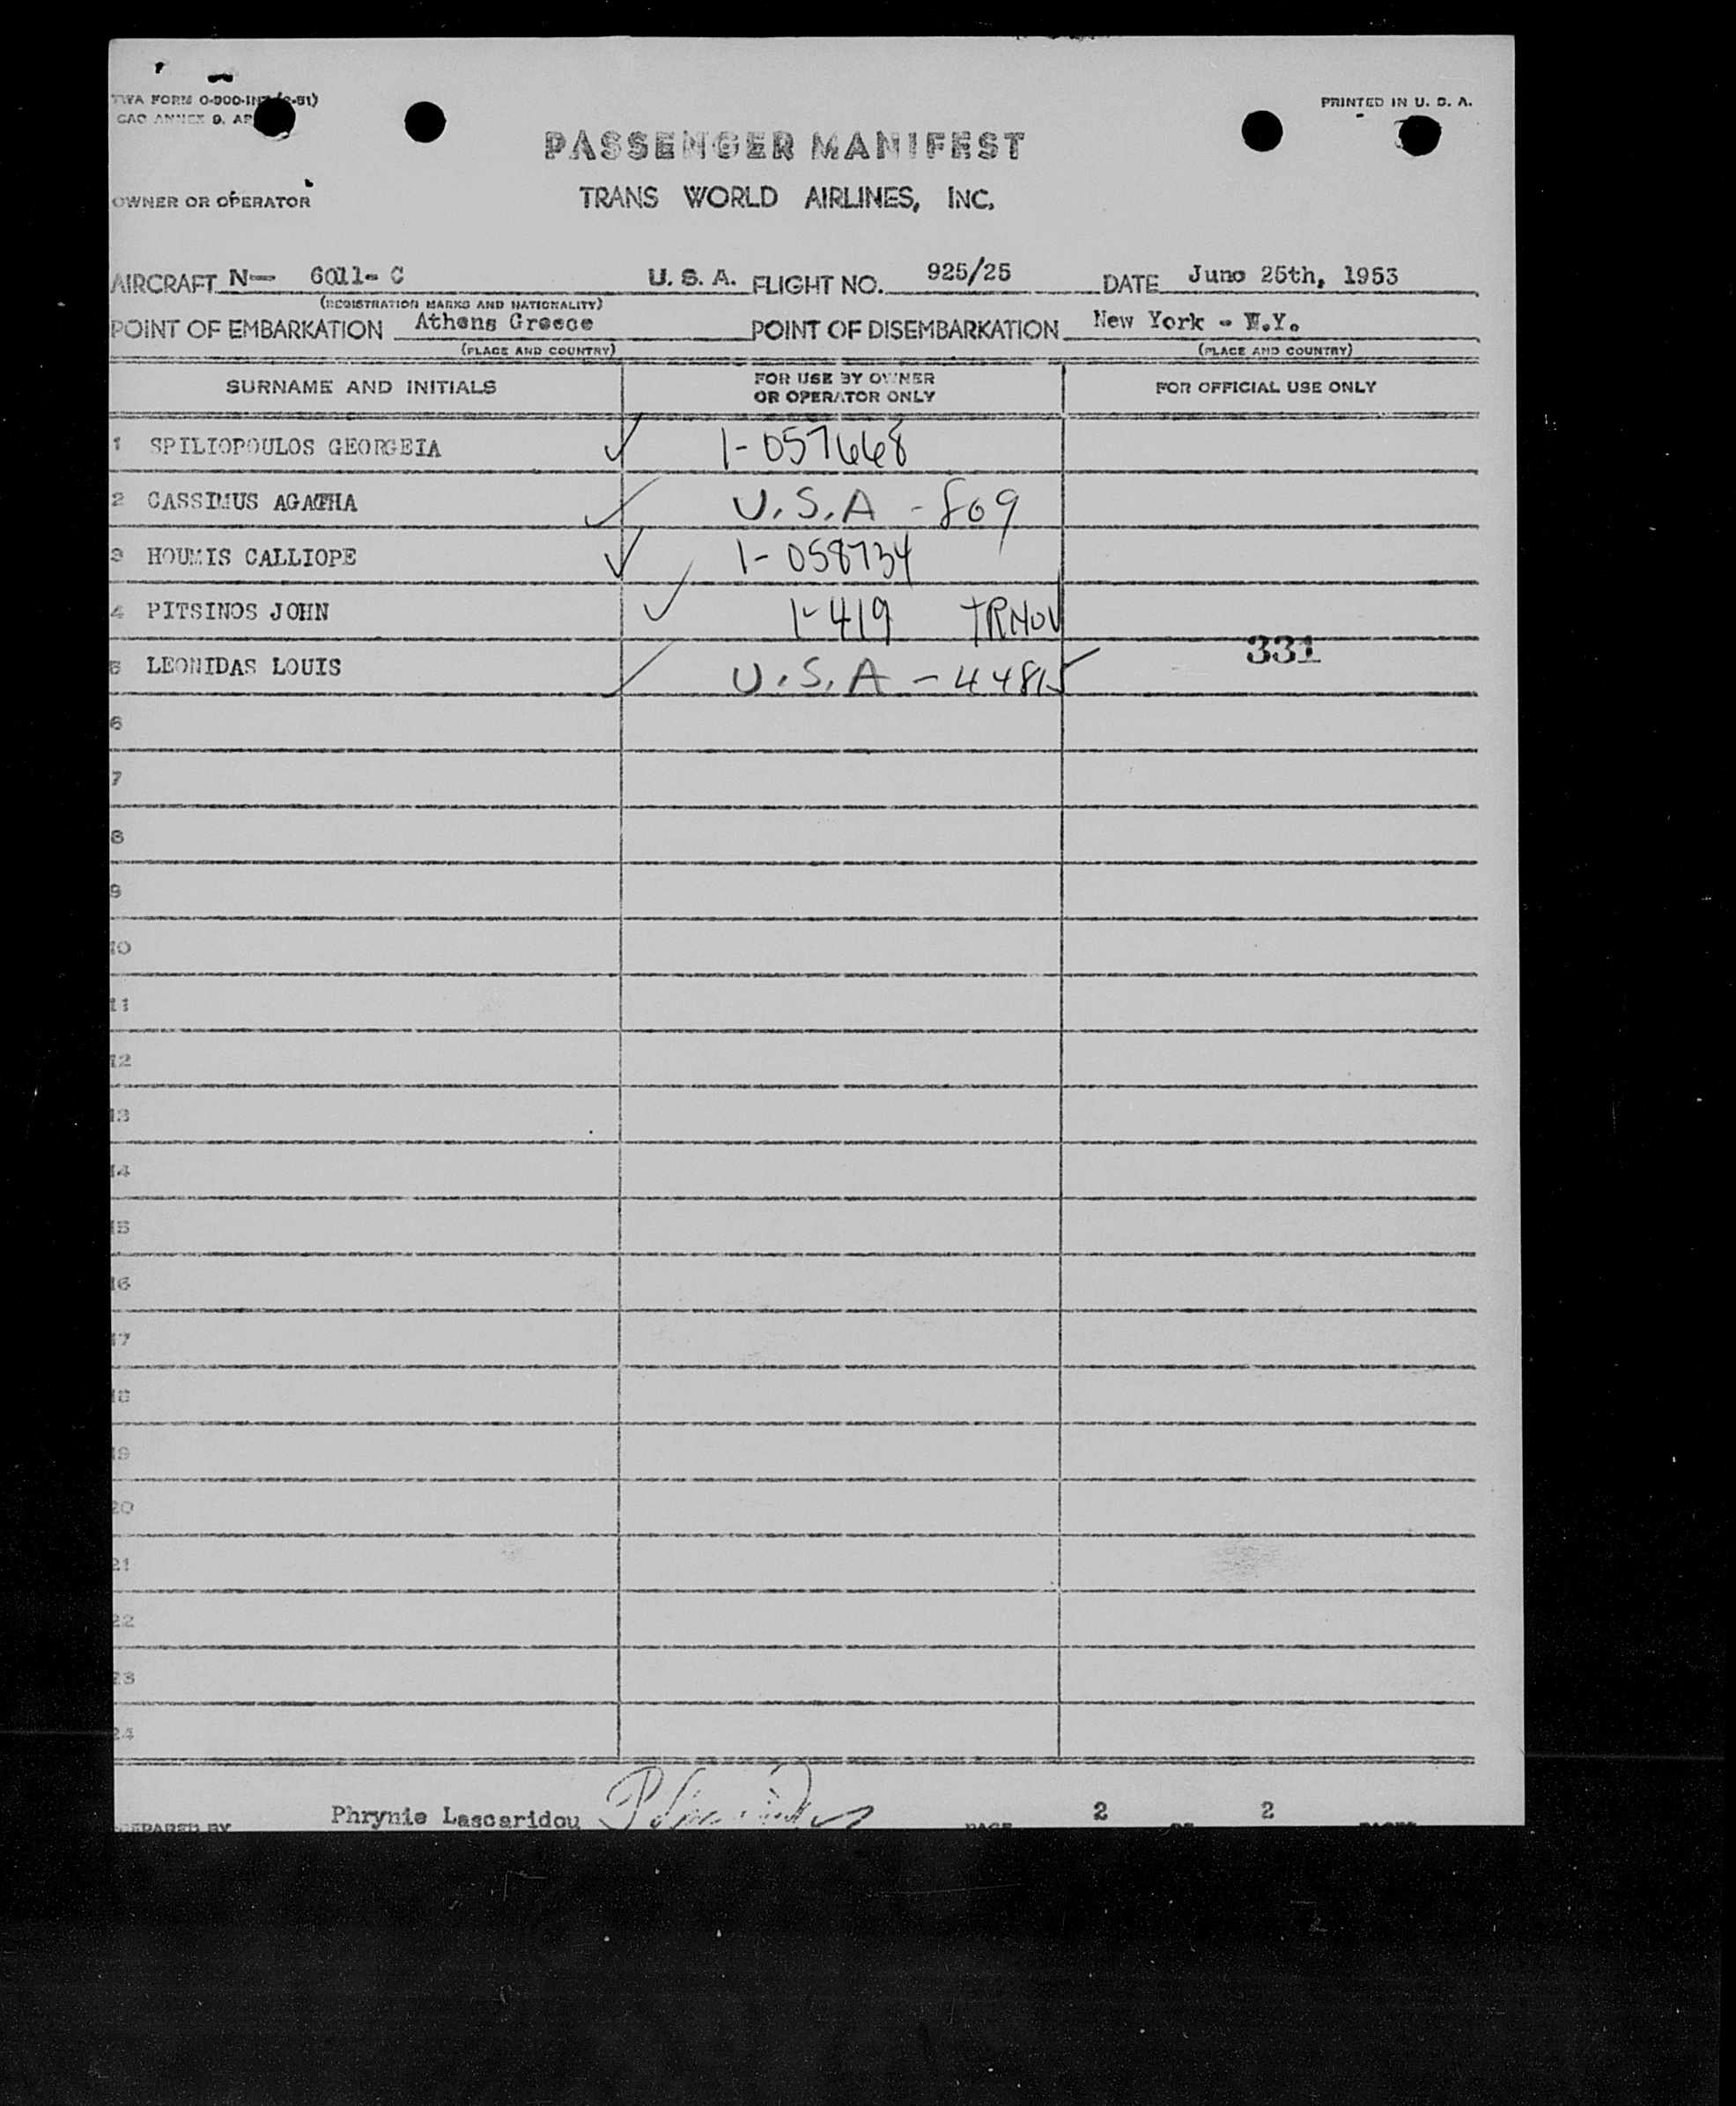 TWA FORM O-900-INT (2-51)
PRINTED IN U. S. A.
CAO ANNEX 9, AP
PASSENGER MANIFEST
OWNER OR OPERATOR
TRANS WORLD AIRLINES, INC.
AIRCRAFT N— 6011- C U. S. A. FLIGHT NO. 925/25 DATE June 25th, 1953
(REGISTRATION MARKS AND NATIONALITY)
POINT OF EMBARKATION Athens Greece POINT OF DISEMBARKATION New York - N.Y.
(PLACE AND COUNTRY) (PLACE AND COUNTRY)
SURNAME AND INITIALS FOR USE BY OWNER OR OPERATOR ONLY FOR OFFICIAL USE ONLY
1 SPILIOPOULOS GEORGEIA ✓ 1-057668
2 CASSIMUS AGATHA ✓ U.S.A - 809
3 HOUMIS CALLIOPE ✓ 1-058734
4 PITSINOS JOHN ✓ 1-419 TRNOV
331
5 LEONIDAS LOUIS ✓ U.S.A - 44815
6
7
8
9
10
11
12
13
14
15
16
17
18
19
20
21
22
23
24
PREPARED BY Phrynie Lascaridou PAGE 2 OF 2 PAGES